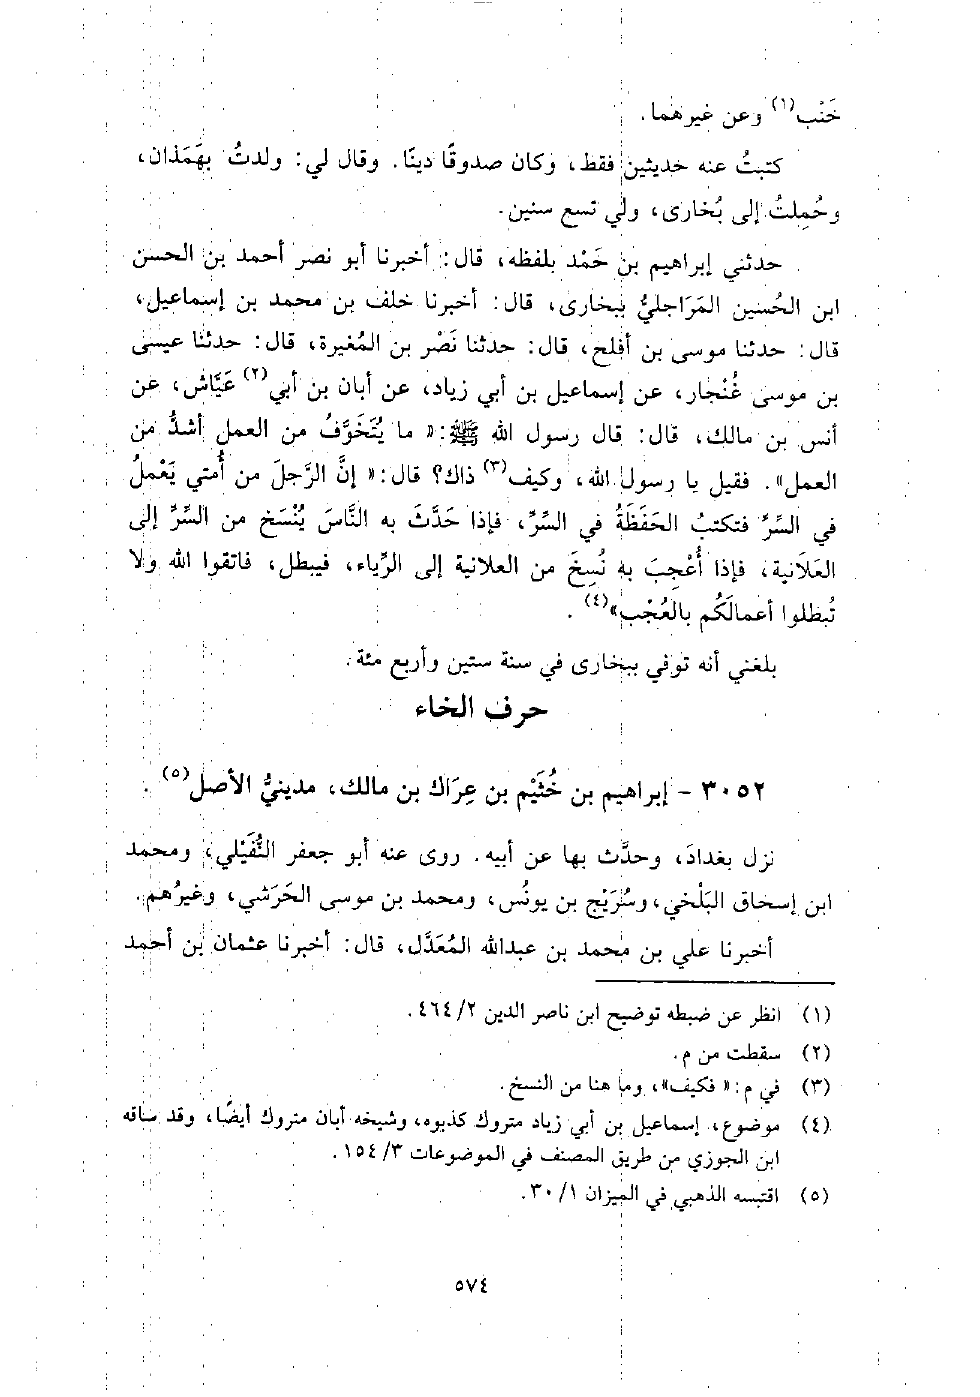 خَنْب(١) وعن غيرهما.
كتبتُ عنه حديثين فقط، وكان صدوقًا دينًا. وقال لي: ولدتُ بهَمَذان،
وحُمِلتُ إلى بُخارى، ولي تسع سنين.
حدثني إبراهيم بن حَمْد بلفظه، قال: أخبرنا أبو نصر أحمد بن الحسن
ابن الحُسين المَرَاجليُّ ببخارى، قال: أخبرنا خلف بن محمد بن إسماعيل،
قال: حدثنا موسى بن أفلح، قال: حدثنا نَصْر بن المُغيرة، قال: حدثنا عيسى
بن موسى غُنْجار، عن إسماعيل بن أبي زياد، عن أبان بن أبي(٢) عَيَّاش، عن
أنس بن مالك، قال: قال رسول الله ﷺ: «ما يُتَخَوَّفُ من العمل أشدُّ من
العمل». فقيل يا رسول الله، وكيف(٣) ذاك؟ قال: «إنَّ الرَّجلَ من أُمتي يَعْملُ
في السِّرِّ فتكتبُ الحَفَظَةُ في السِّرِّ، فإذا حَدَّثَ به النَّاسَ يُنْسَخ من السِّرِّ إلى
العَلَانية، فإذا أُعْجِبَ به نُسِخَ من العلانية إلى الرِّياء، فيبطل، فاتقوا الله ولا
تُبطلوا أعمالَكُم بالعُجْب»(٤).
بلغني أنه توفي ببخارى في سنة ستين وأربع مئة.
حرف الخاء
٣٠٥٢ - إبراهيم بن خُثَيْم بن عِرَاك بن مالك، مدينيُّ الأصل(٥).
نزل بغدادَ، وحدَّث بها عن أبيه. روى عنه أبو جعفر النُّفَيْلي، ومحمد
ابن إسحاق البَلْخي، وسُرَيْج بن يونُس، ومحمد بن موسى الحَرَشي، وغيرُهم.
أخبرنا علي بن محمد بن عبدالله المُعَدَّل، قال: أخبرنا عثمان بن أحمد
(١) انظر عن ضبطه توضيح ابن ناصر الدين ٢/ ٤٦٤.
(٢) سقطت من م.
(٣) في م: «فكيف»، وما هنا من النسخ.
(٤) موضوع، إسماعيل بن أبي زياد متروك كذبوه، وشيخه أبان متروك أيضًا، وقد ساقه
ابن الجوزي من طريق المصنف في الموضوعات ٣/ ١٥٤.
(٥) اقتبسه الذهبي في الميزان ١/ ٣٠.
٥٧٤